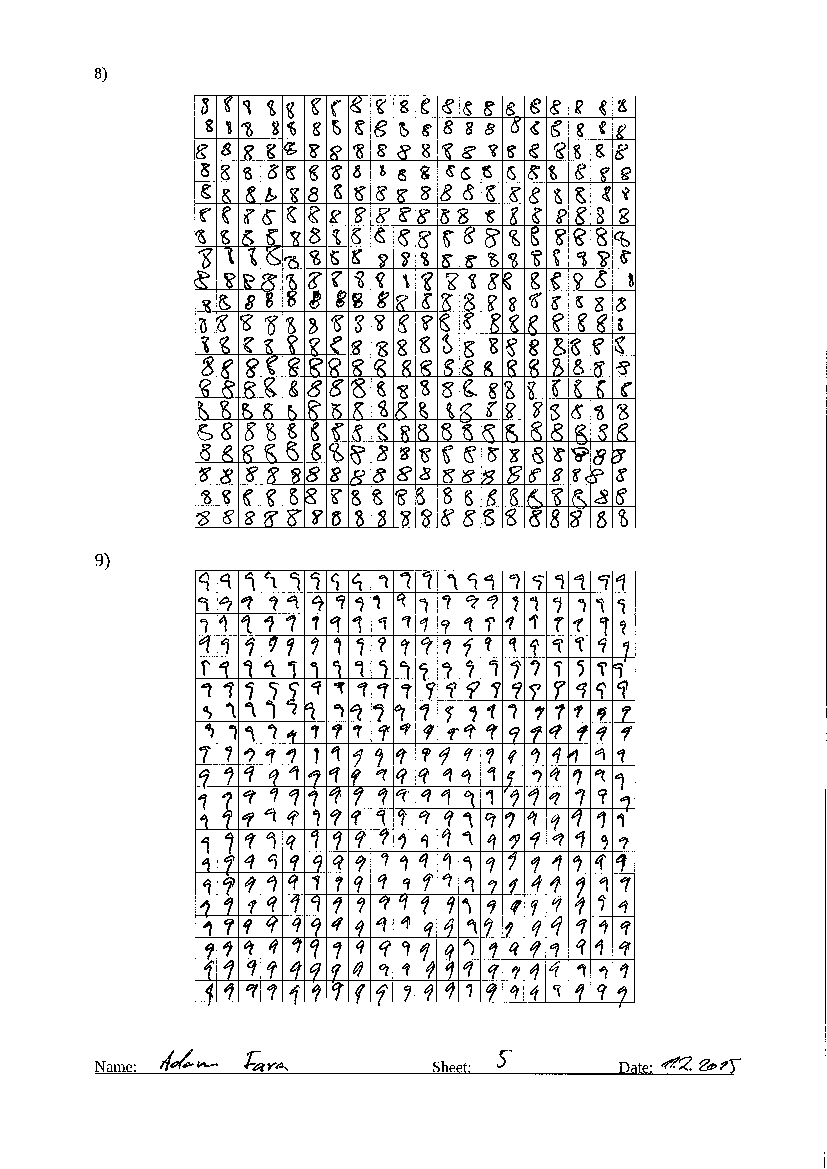 8)
8 8 8 8 8 8 8 8 8 8 8 8 8 8 8 8 8 8 8 8
8 8 8 8 8 8 8 8 8 8 8 8 8 8 8 8 8 8 8 8
8 8 8 8 8 8 8 8 8 8 8 8 8 8 8 8 8 8 8 8
8 8 8 8 8 8 8 8 8 8 8 8 8 8 8 8 8 8 8 8
8 8 8 8 8 8 8 8 8 8 8 8 8 8 8 8 8 8 8 8
8 8 8 8 8 8 8 8 8 8 8 8 8 8 8 8 8 8 8 8
8 8 8 8 8 8 8 8 8 8 8 8 8 8 8 8 8 8 8 8
8 8 8 8 8 8 8 8 8 8 8 8 8 8 8 8 8 8 8 8
8 8 8 8 8 8 8 8 8 8 8 8 8 8 8 8 8 8 8 8
8 8 8 8 8 8 8 8 8 8 8 8 8 8 8 8 8 8 8 8
8 8 8 8 8 8 8 8 8 8 8 8 8 8 8 8 8 8 8 8
8 8 8 8 8 8 8 8 8 8 8 8 8 8 8 8 8 8 8 8
8 8 8 8 8 8 8 8 8 8 8 8 8 8 8 8 8 8 8 8
8 8 8 8 8 8 8 8 8 8 8 8 8 8 8 8 8 8 8 8
8 8 8 8 8 8 8 8 8 8 8 8 8 8 8 8 8 8 8 8
8 8 8 8 8 8 8 8 8 8 8 8 8 8 8 8 8 8 8 8
8 8 8 8 8 8 8 8 8 8 8 8 8 8 8 8 8 8 8 8
8 8 8 8 8 8 8 8 8 8 8 8 8 8 8 8 8 8 8 8
8 8 8 8 8 8 8 8 8 8 8 8 8 8 8 8 8 8 8 8
8 8 8 8 8 8 8 8 8 8 8 8 8 8 8 8 8 8 8 8
9)
9 9 9 9 9 9 9 9 9 9 9 9 9 9 9 9 9 9 9 9
9 9 9 9 9 9 9 9 9 9 9 9 9 9 9 9 9 9 9 9
9 9 9 9 9 9 9 9 9 9 9 9 9 9 9 9 9 9 9 9
9 9 9 9 9 9 9 9 9 9 9 9 9 9 9 9 9 9 9 9
9 9 9 9 9 9 9 9 9 9 9 9 9 9 9 9 9 9 9 9
9 9 9 9 9 9 9 9 9 9 9 9 9 9 9 9 9 9 9 9
9 9 9 9 9 9 9 9 9 9 9 9 9 9 9 9 9 9 9 9
9 9 9 9 9 9 9 9 9 9 9 9 9 9 9 9 9 9 9 9
9 9 9 9 9 9 9 9 9 9 9 9 9 9 9 9 9 9 9 9
9 9 9 9 9 9 9 9 9 9 9 9 9 9 9 9 9 9 9 9
9 9 9 9 9 9 9 9 9 9 9 9 9 9 9 9 9 9 9 9
9 9 9 9 9 9 9 9 9 9 9 9 9 9 9 9 9 9 9 9
9 9 9 9 9 9 9 9 9 9 9 9 9 9 9 9 9 9 9 9
9 9 9 9 9 9 9 9 9 9 9 9 9 9 9 9 9 9 9 9
9 9 9 9 9 9 9 9 9 9 9 9 9 9 9 9 9 9 9 9
9 9 9 9 9 9 9 9 9 9 9 9 9 9 9 9 9 9 9 9
9 9 9 9 9 9 9 9 9 9 9 9 9 9 9 9 9 9 9 9
9 9 9 9 9 9 9 9 9 9 9 9 9 9 9 9 9 9 9 9
9 9 9 9 9 9 9 9 9 9 9 9 9 9 9 9 9 9 9 9
9 9 9 9 9 9 9 9 9 9 9 9 9 9 9 9 9 9 9 9
Name: Adam Fara Sheet: 5 Date: 11.2.2015